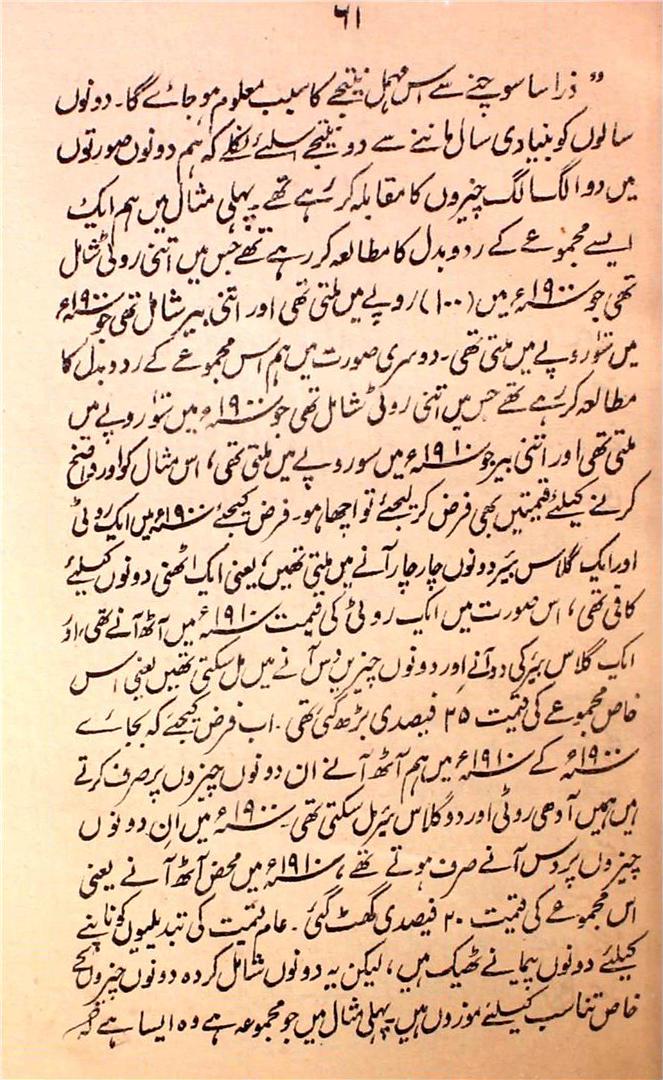 ۶۱
” ذرا سا سوچنے سے اس مہمل نیتجے کا سبب معلوم ہو جائے گا۔ دونوں
سالوں کو بنیادی سال ماننے سے دو نیتجے اسلئے نکلے کہ ہم دونوں صورتوں
میں دو الگ الگ چیزوں کا مقابلہ کر رہے تھے۔ پہلی مثال میں ہم ایک
ایسے مجموعے کے ردوبدل کا مطالعہ کر رہے تھے جس میں اتنی روٹی شامل
تھی جو ۱۹۰۰ء میں (۱۰۰) روپے میں ملتی تھی اور اتنی بیر شامل تھی جو ۱۹۰۰ء
میں سَو روپے میں ملتی تھی۔ دوسری صورت میں ہم اس مجموعے کے ردوبدل کا
مطالعہ کر رہے تھے جس میں اتنی روٹی شامل تھی جو ۱۹۰۰ء میں سَو روپے میں
ملتی تھی اور اتنی بیر جو ۱۹۱۰ء میں سو روپے میں ملتی تھی، اس مثال کو اور واضح
کرنے کیلئے قیمتیں بھی فرض کر لیجئے تو اچھا ہو۔ فرض کیجئے ۱۹۰۰ء میں ایک روٹی
اور ایک گلاس بیئر دونوں چار چار آنے میں ملتی تھیں، یعنی ایک اٹھنی دونوں کیلئے
کافی تھی، اس صورت میں ایک روٹی کی قیمت ۱۹۱۰ء میں آٹھ آنے تھی، اور
ایک گلاس بیئر کی دو آنے اور دونوں چیزیں دس آنے میں مل سکتی تھیں یعنی اس
خاص مجموعے کی قیمت ۲۵ فیصدی بڑھ گئی تھی۔ اب فرض کیجئے کہ بجائے
۱۹۰۰ء کے ۱۹۱۰ء میں ہم آٹھ آنے ان دونوں چیزوں پر صرف کرتے
ہیں ہمیں آدھی روٹی اور دو گلاس بیئر مل سکتی تھی۔ ۱۹۰۰ء میں ان دونوں
چیزوں پر دس آنے صرف ہوتے تھے، ۱۹۱۰ء میں محض آٹھ آنے یعنی
اس مجموعے کی قیمت ۲۰ فیصدی گھٹ گئی۔ عام قیمت کی تبدیلیوں کو ناپنے
کیلئے دونوں پیمانے ٹھیک ہیں، لیکن یہ دونوں شامل کردہ دونوں چیزوں کے
خاص تناسب کیلئے موزوں ہیں۔ پہلی مثال میں جو مجموعہ ہے وہ ایسا ہے کہ